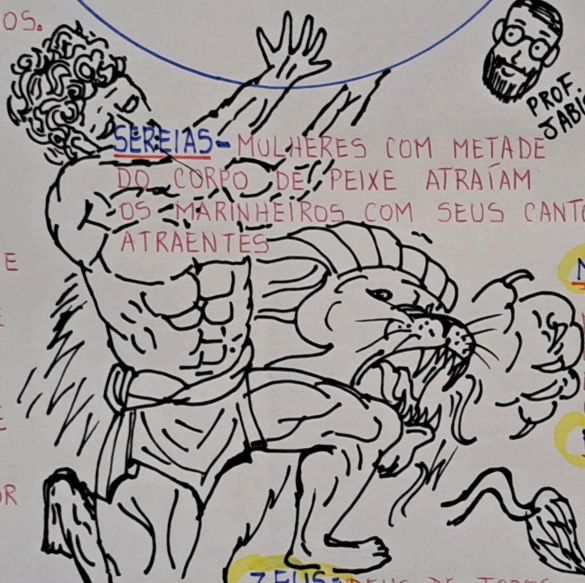 OS.
PROF.
SEREIAS- MULHERES COM METADE
DO CORPO DE PEIXE ATRAÍAM
OS MARINHEIROS COM SEUS CANT
ATRAENTES
E
OR
ZEUS: DEUS DE